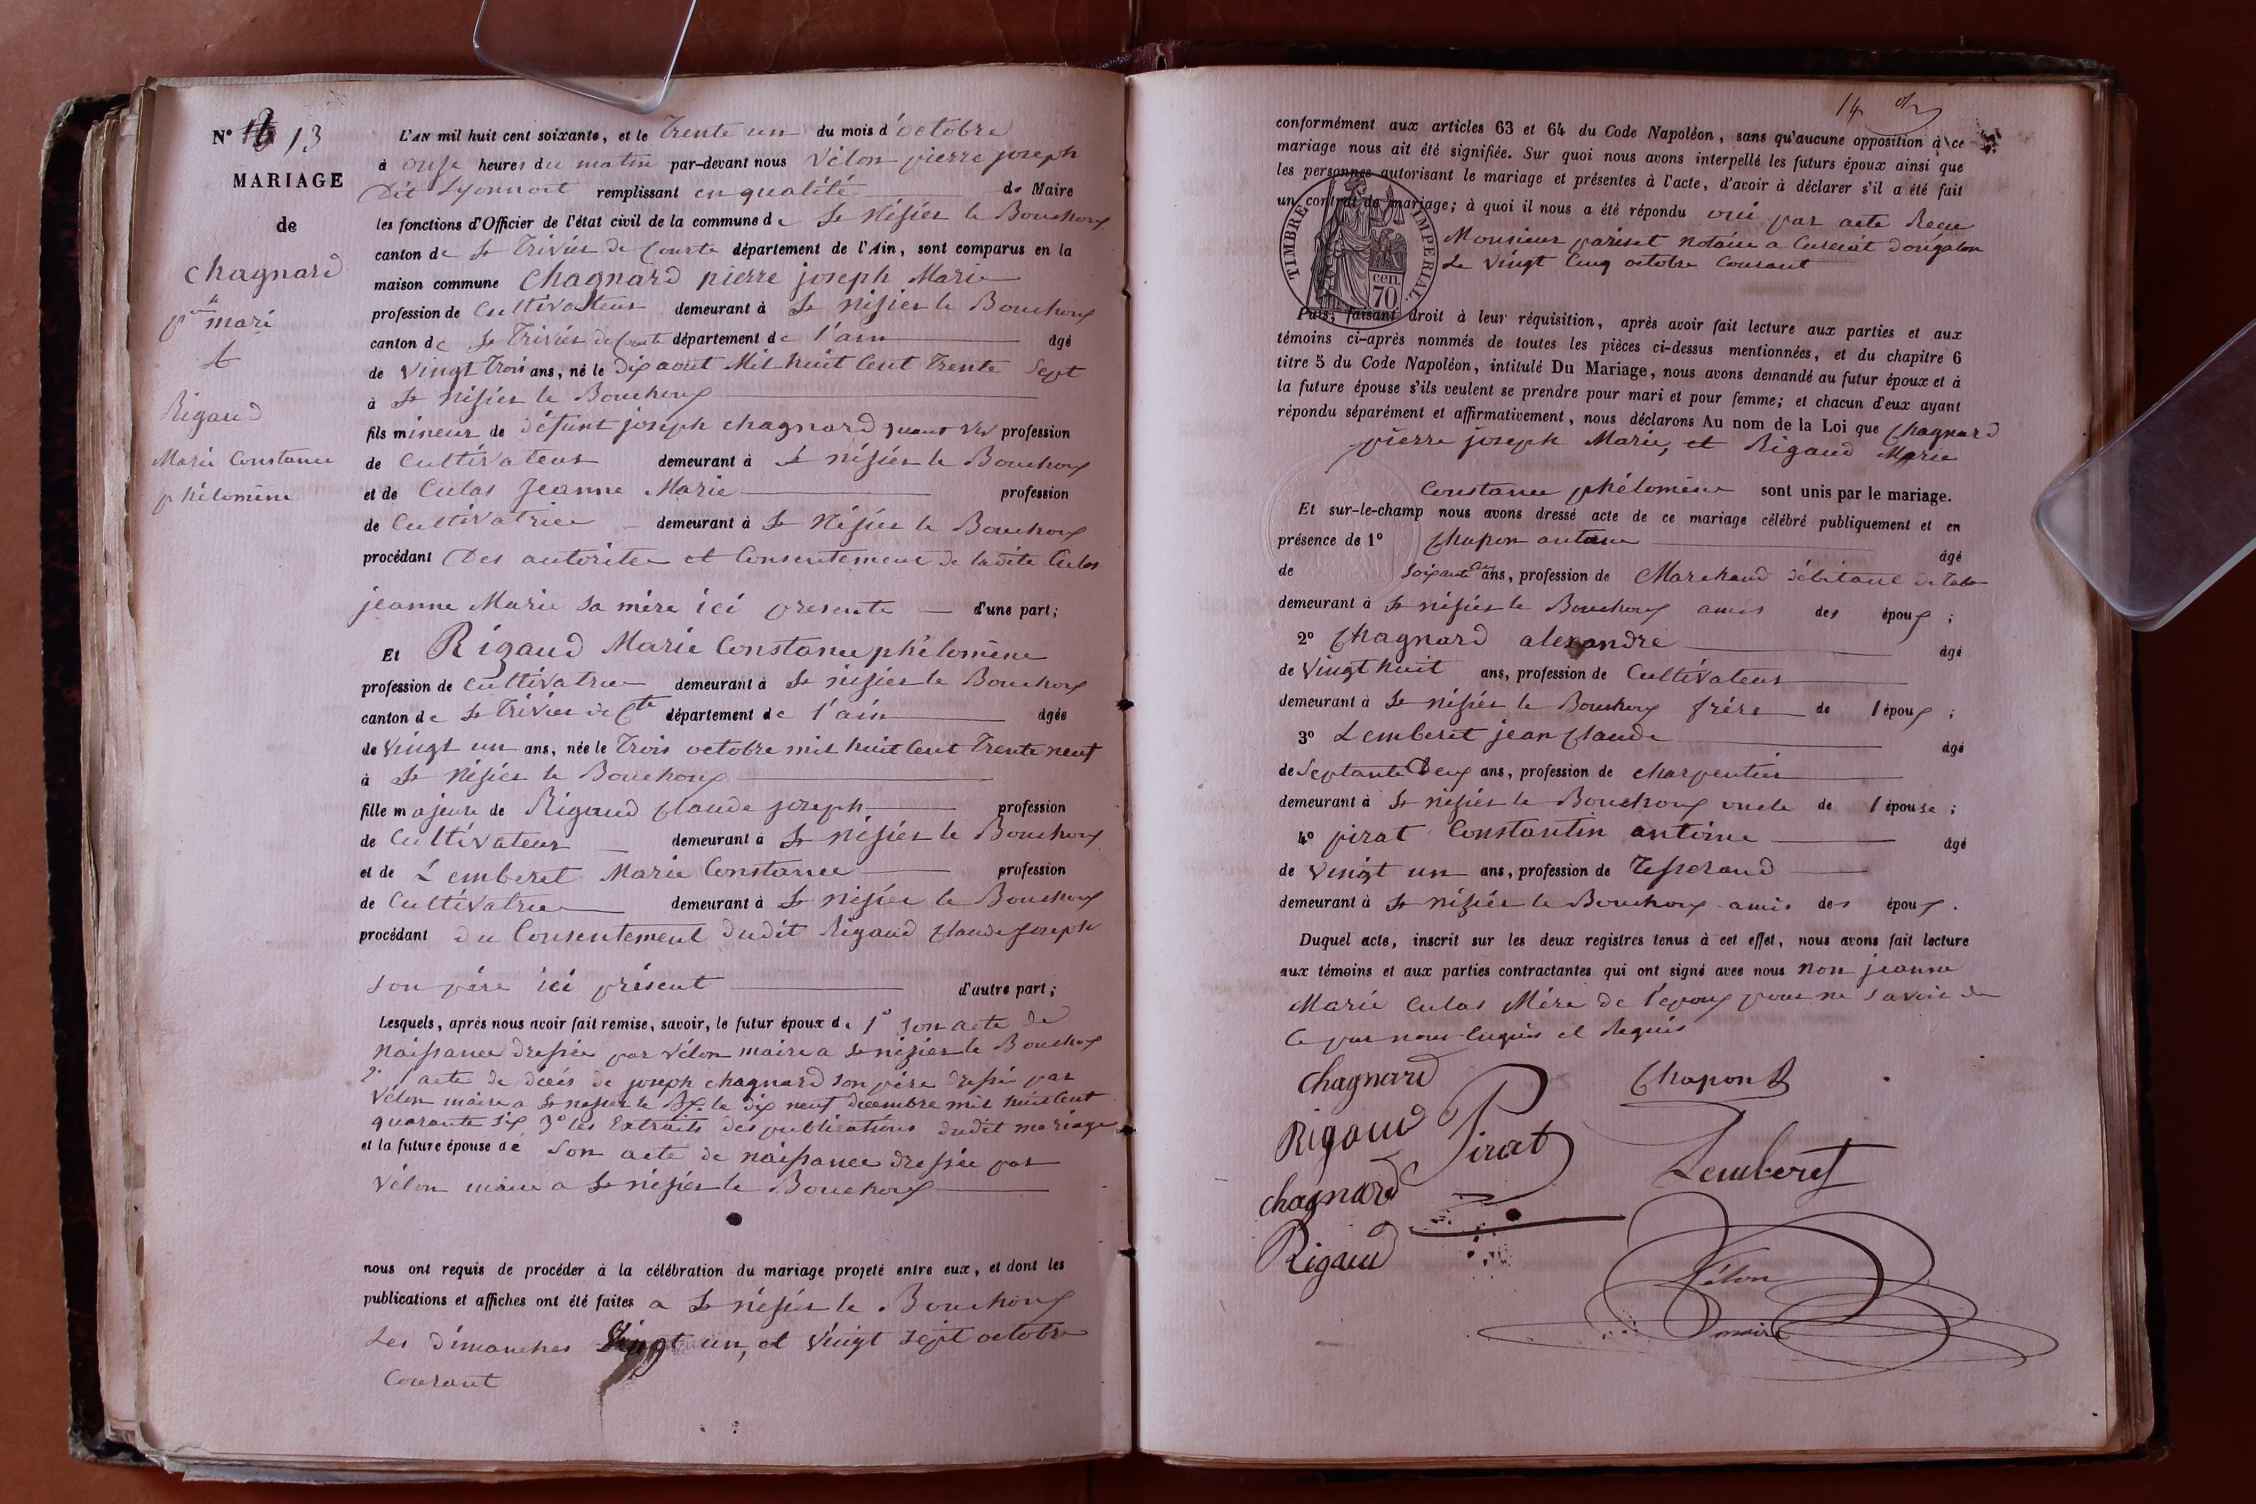 N° 13
MARIAGE
de
Chagnard
mari
Rigaud
Marie Constance
phélomène
L'AN mil huit cent soixante, et le Trente un du mois d'octobre
à onze heures du matin par-devant nous Vélon pierre joseph
Dit Lyonnait remplissant en qualité de Maire
les fonctions d'Officier de l'état civil de la commune de St Nésier le Bouchoux
canton de St Trivier de Courte département de l'Ain, sont comparus en la
maison commune Chagnard pierre joseph Marie
profession de Cultivateur demeurant à St nésier le Bouchoux
canton de St Trivier de Courte département de l'ain âgé
de vingt Trois ans, né le Dix aout Mil huit Cent Trente Sept
à St nésier le Bouchoux
fils mineur de défunt joseph chagnard quant vis profession
de Cultivateur demeurant à St nésier le Bouchoux
et de Culas Jeanne Marie profession
de Cultivatrice demeurant à St Nésier le Bouchoux
procédant Des autorite et Consentement de ladite Culas
jeanne Marie sa mère ici presente d'une part;
Et Rigaud Marie Constance phélomène
profession de Cultivatrice demeurant à St nisier le Bouchoux
canton de St Trivier de Cte département de l'ain âgée
de vingt un ans, née le Trois octobre mil huit Cent Trente neuf
à St Nésier le Bouchoux
fille majeure de Rigaud Claude joseph profession
de Cultivateur demeurant à St Nésier le Bouchoux
et de Lemberet Marie Constance profession
de Cultivatrice demeurant à St nisier le Bouchoux
procédant du Consentement dudit Rigaud Claude Joseph
son père ici présent d'autre part;
Lesquels, après nous avoir fait remise, savoir, le futur époux de 1° son acte de
Naissance dressée par Vélon maire a St nizier le Bouchoux
2° l'acte de décés de joseph chagnard son père dressé par
Vélon maire a St nesier le Bx. le dix neuf décembre mil huit Cent
quarante six 3° les Extraits des publications dudit mariage
et la future épouse dé Son acte de naissance dressée par
Vélon maire a St nésier le Bouchoux
nous ont requis de procéder à la célébration du mariage projeté entre eux, et dont les
publications et affiches ont été faites a St nésier le Bouchoux
Les dimanches Vingt un, et Vingt sept octobre
Courant
14
conformément aux articles 63 et 64 du Code Napoléon, sans qu'aucune opposition à ce
mariage nous ait été signifiée. Sur quoi nous avons interpellé les futurs époux ainsi que
les personnes autorisant le mariage et présentes à l'acte, d'avoir à déclarer s'il a été fait
un contrat de mariage; à quoi il nous a été répondu oui par acte Recu
Monsieur pariset Notaire a Cuiseat
Le Vingt Cinq octobre Courant
TIMBRE IMPÉRIAL
cen. 70
Puis, faisant droit à leur réquisition, après avoir fait lecture aux parties et aux
témoins ci-après nommés de toutes les pièces ci-dessus mentionnées, et du chapitre 6
titre 5 du Code Napoléon, intitulé Du Mariage, nous avons demandé au futur époux et à
la future épouse s'ils veulent se prendre pour mari et pour femme; et chacun d'eux ayant
répondu séparément et affirmativement, nous déclarons Au nom de la Loi que Chagnard
pierre joseph Marie, et Rigaud Marie
Constance phélomène sont unis par le mariage.
Et sur-le-champ nous avons dressé acte de ce mariage célébré publiquement et en
présence de 1° Chapon antoine âgé
de soixante ans, profession de Marchand débitant de Tabac
demeurant à St nésier le Bouchoux amis des époux;
2° Chagnard alexandre âgé
de vingt huit ans, profession de Cultivateur
demeurant à St nésier le Bouchoux frére de l'époux;
3° Lemberet jean Claude âgé
de Septante Deux ans, profession de charpentier
demeurant à St nésier le Bouchoux oncle de l'épouse;
4° pirat Constantin antoine âgé
de vingt un ans, profession de Tesserand
demeurant à St nézier le Bouchoux amis des époux.
Duquel acte, inscrit sur les deux registres tenus à cet effet, nous avons fait lecture
aux témoins et aux parties contractantes qui ont signé avec nous non jeanne
Marie Culas Mère de l'époux pour ne savoir de
Ce par nous Enquis et Requis
Chagnard
Chapon
Rigaud
Pirat
Lemberet
Chagnard
Rigaud
Vélon
maire